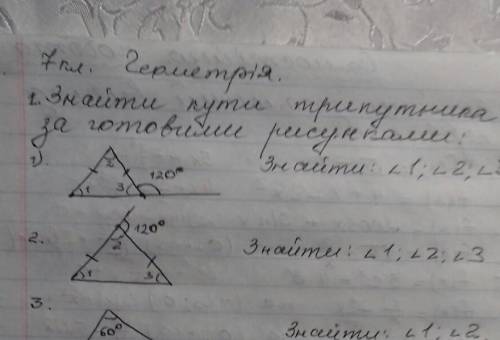 7 кл. Геометрія.
1. Знайти кути трикутника
за готовими рисунками:
1). 2 1 3 120° Знайти: ∠1; ∠2; ∠3
2. 120° 2 1 3 Знайти: ∠1; ∠2; ∠3
3. 60° Знайти: ∠1; ∠2.